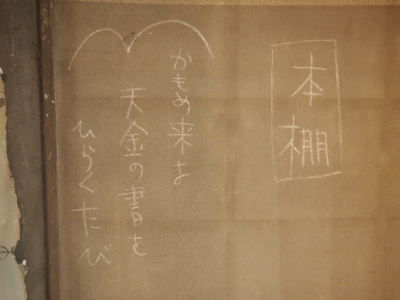 本棚
かもめ来よ
天金の書を
ひらくたび